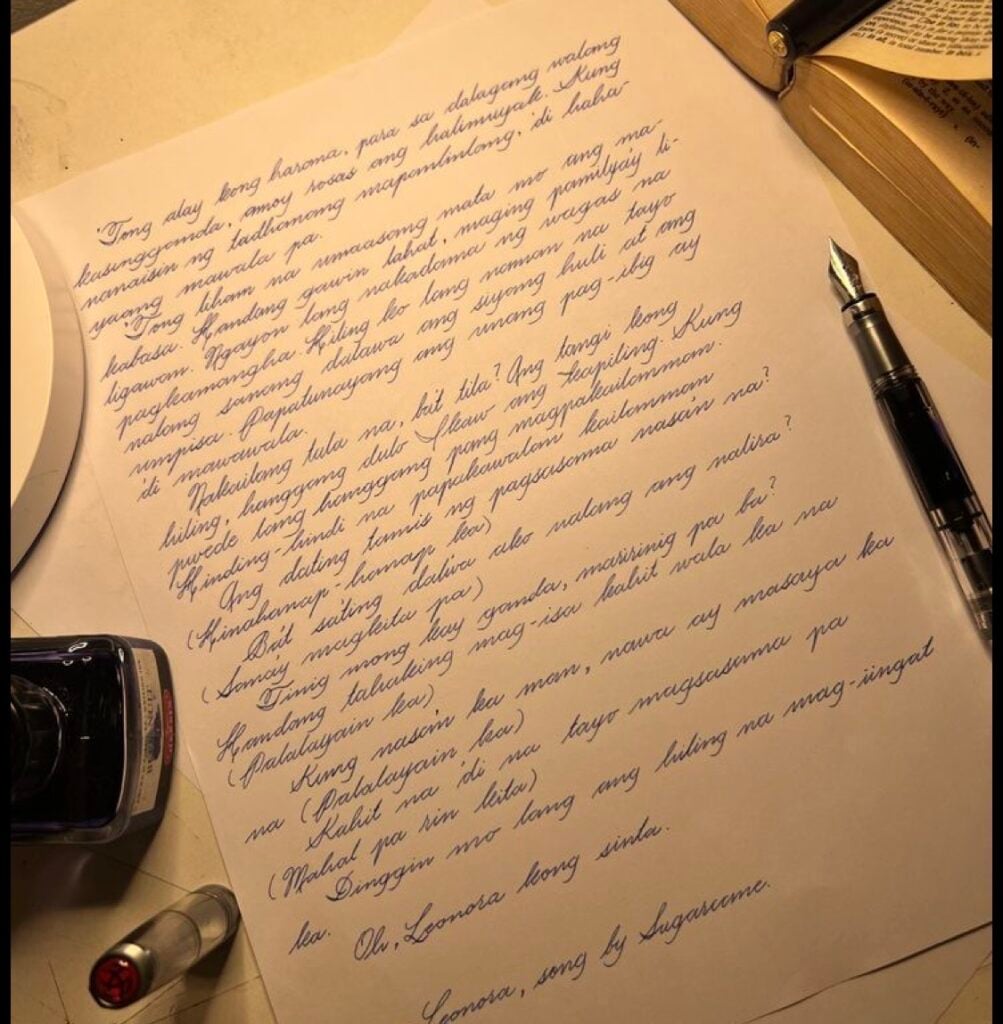 'Tong alay kong harana, para sa dalagang walang
kasingganda, amoy rosas ang halimuyak. Kung
nanaisin ng tadhanang mapanlinlang, 'di haha-
yaang mawala pa.
'Tong liham na umaasang mata mo ang ma-
kabasa. Handang gawin lahat, maging pamilya'y li-
ligawan. Ngayon lang nakadama ng wagas na
pagkamangha. Hiling ko lang naman na tayo
nalang sanang dalawa ang siyang huli at ang
umpisa. Papatunayang ang unang pag-ibig ay
'di mawawala.
Nakailang tula na, ba't tila? Ang tangi kong
hiling, hanggang dulo Ikaw ang kapiling. Kung
pwede lang hanggang pang magpakailanman.
Hinding-hindi na papakawalan kailanman
Ang dating tamis ng pagsasama nasa'n na?
(Hinahanap-hanap ka)
Ba't sating dalwa ako nalang ang natira?
(Sana'y magkita pa)
Tinig mong kay ganda, maririnig pa ba?
Handang tahaking mag-isa kahit wala ka na
(Palalayain ka)
Kung nasa'n ka man, nawa ay masaya ka
na (Palalayain ka)
Kahit na 'di na tayo magsasama pa
(Mahal pa rin kita)
Dinggin mo lang ang hiling na mag-iingat
ka.
Oh, Leonora kong sinta.
Leonora, song by Sugarcane.